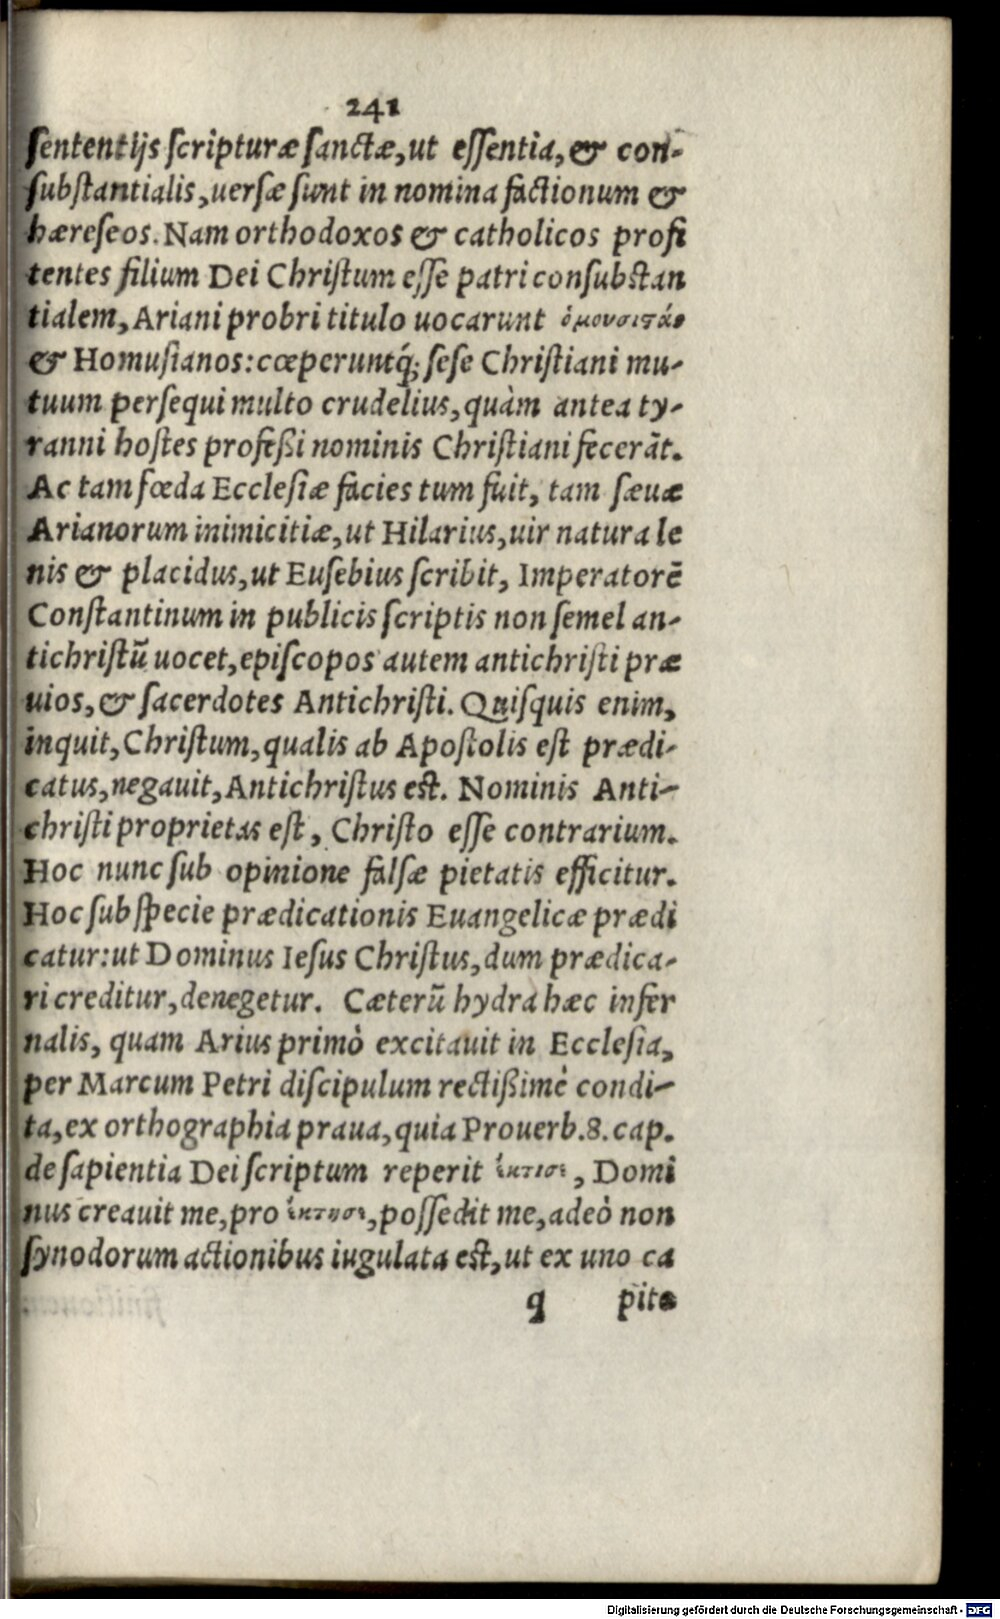 241
sententijs scripturæ sanctæ, ut essentia, & con-
substantialis, uersæ sunt in nomina factionum &
hæreseos. Nam orthodoxos & catholicos profi
tentes filium Dei Christum esse patri consubstan
tialem, Ariani probri titulo uocarunt ὁμουσιτάς
& Homusianos: cœperuntq́; sese Christiani mu-
tuum persequi multo crudelius, quàm antea ty-
ranni hostes professi nominis Christiani fecerāt.
Ac tam fœda Ecclesiæ facies tum fuit, tam sæuæ
Arianorum inimicitiæ, ut Hilarius, uir natura le
nis & placidus, ut Eusebius scribit, Imperatorē
Constantinum in publicis scriptis non semel an-
tichristū uocet, episcopos autem antichristi præ
uios, & sacerdotes Antichristi. Quisquis enim,
inquit, Christum, qualis ab Apostolis est prædi-
catus, negauit, Antichristus est. Nominis Anti-
christi proprietas est, Christo esse contrarium.
Hoc nunc sub opinione falsæ pietatis efficitur.
Hoc sub specie prædicationis Euangelicæ prædi
catur: ut Dominus Iesus Christus, dum prædica-
ri creditur, denegetur. Cæterū hydra hæc infer
nalis, quam Arius primò excitauit in Ecclesia,
per Marcum Petri discipulum rectissimè condi-
ta, ex orthographia praua, quia Prouerb. 8. cap.
de sapientia Dei scriptum reperit ἔκτισε, Domi
nus creauit me, pro ἔκτησε, possedit me, adeò non
synodorum actionibus iugulata est, ut ex uno ca
q pite
Digitalisierung gefördert durch die Deutsche Forschungsgemeinschaft - DFG